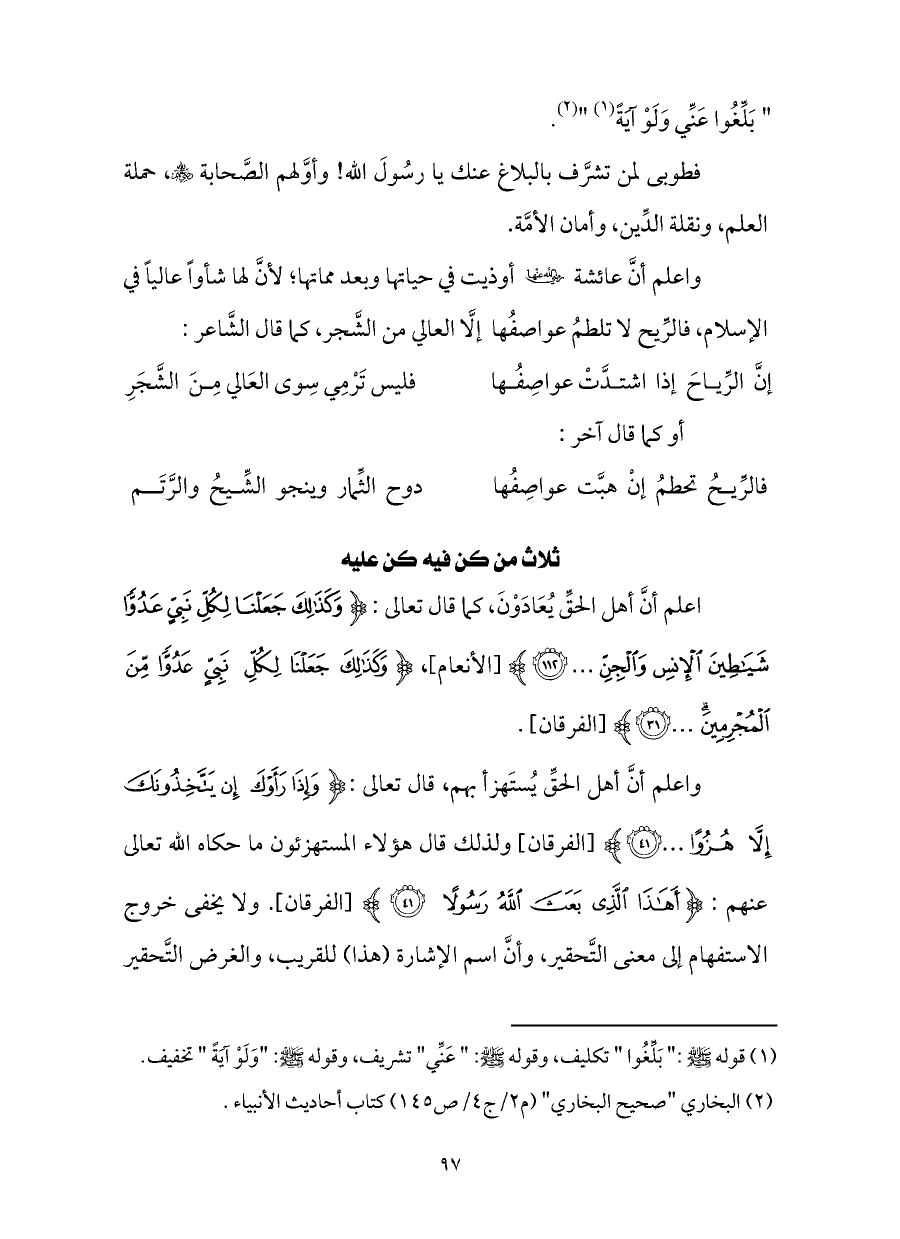 " بَلِّغُوا عَنِّي وَلَوْ آيَةً(١) "(٢).
فطوبى لمن تشرَّف بالبلاغ عنك يا رسُولَ الله! وأوَّلهم الصَّحابة ﵃، حملة
العلم، ونقلة الدِّين، وأمان الأمَّة.
واعلم أنَّ عائشة ﵂ أوذيت في حياتها وبعد مماتها؛ لأنَّ لها شأواً عالياً في
الإسلام، فالرِّيح لا تلطمُ عواصفُها إلَّا العالي من الشَّجر، كما قال الشَّاعر :
إنَّ الرِّيـاحَ إذا اشتـدَّتْ عواصِفُـها فليس تَرْمِي سِوى العَالي مِـنَ الشَّجَرِ
أو كما قال آخر :
فالرِّيـحُ تحطمُ إنْ هبَّت عواصِفُها دوح الثِّمار وينجو الشِّـيحُ والرَّتَـم
ثلاث من كن فيه كن عليه
اعلم أنَّ أهل الحقِّ يُعَادَوْنَ، كما قال تعالى : ﴿ وَكَذَٰلِكَ جَعَلْنَـا لِكُلِّ نَبِيٍّ عَدُوًّا
شَيَـٰطِينَ ٱلْإِنسِ وَٱلْجِنِّ ... ١١٢ ﴾ [الأنعام]، ﴿ وَكَذَٰلِكَ جَعَلْنَا لِكُلِّ نَبِيٍّ عَدُوًّا مِّنَ
ٱلْمُجْرِمِينَۗ ... ٣١ ﴾ [الفرقان] .
واعلم أنَّ أهل الحقِّ يُستَهزأ بهم، قال تعالى :﴿ وَإِذَا رَأَوْكَ إِن يَتَّخِذُونَكَ
إِلَّا هُـزُوًا ... ٤١ ﴾ [الفرقان] ولذلك قال هؤلاء المستهزئون ما حكاه الله تعالى
عنهم : ﴿ أَهَـٰذَا ٱلَّذِى بَعَثَ ٱللَّهُ رَسُولًا ٤١ ﴾ [الفرقان]. ولا يخفى خروج
الاستفهام إلى معنى التَّحقير، وأنَّ اسم الإشارة (هذا) للقريب، والغرض التَّحقير
(١) قوله ﷺ :" بَلِّغُوا " تكليف، وقوله ﷺ: " عَنِّي" تشريف، وقوله ﷺ: "وَلَوْ آيَةً " تخفيف.
(٢) البخاري "صحيح البخاري" (م٢/ ج٤/ ص١٤٥) كتاب أحاديث الأنبياء .
٩٧